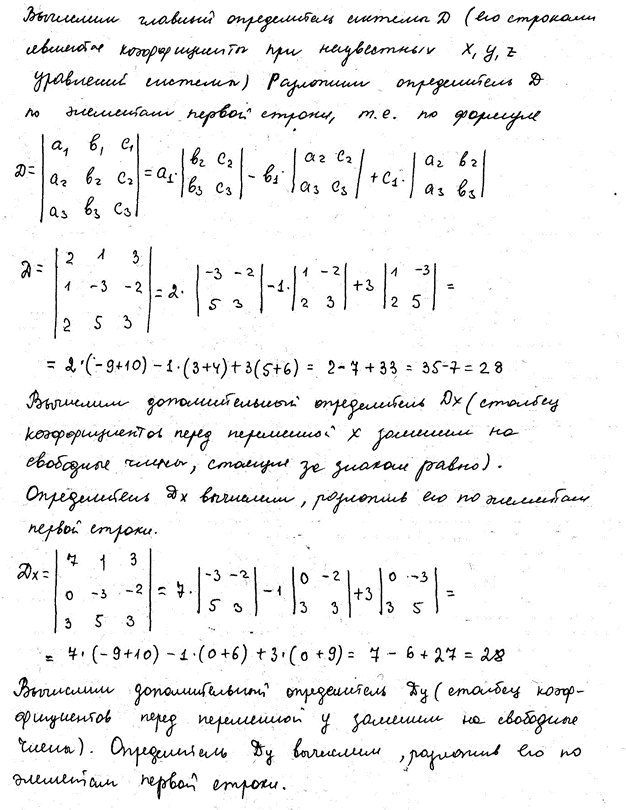 Вычислим главный определитель системы D (его строками
являются коэффициенты при неизвестных x, y, z
уравнений системы) Разложим определитель D
по элементам первой строки, т.е. по формуле
D = | a₁ b₁ c₁ ; a₂ b₂ c₂ ; a₃ b₃ c₃ | = a₁· | b₂ c₂ ; b₃ c₃ | - b₁· | a₂ c₂ ; a₃ c₃ | + c₁· | a₂ b₂ ; a₃ b₃ |
D = | 2 1 3 ; 1 -3 -2 ; 2 5 3 | = 2· | -3 -2 ; 5 3 | -1· | 1 -2 ; 2 3 | +3 | 1 -3 ; 2 5 | =
= 2·(-9+10) -1·(3+4)+3(5+6) = 2-7+33 = 35-7 = 28
Вычислим дополнительный определитель Dx (столбец
коэффициентов перед переменной x заменим на
свободные члены, стоящие за знаком равно).
Определитель Dx вычислим, разложив его по элементам
первой строки.
Dx = | 7 1 3 ; 0 -3 -2 ; 3 5 3 | = 7· | -3 -2 ; 5 3 | -1 | 0 -2 ; 3 3 | +3 | 0 -3 ; 3 5 | =
= 7·(-9+10) -1·(0+6) +3·(0+9) = 7 - 6 + 27 = 28
Вычислим дополнительный определитель Dy (столбец коэф-
фициентов перед переменной y заменим на свободные
члены). Определитель Dy вычислим, разложив его по
элементам первой строки.